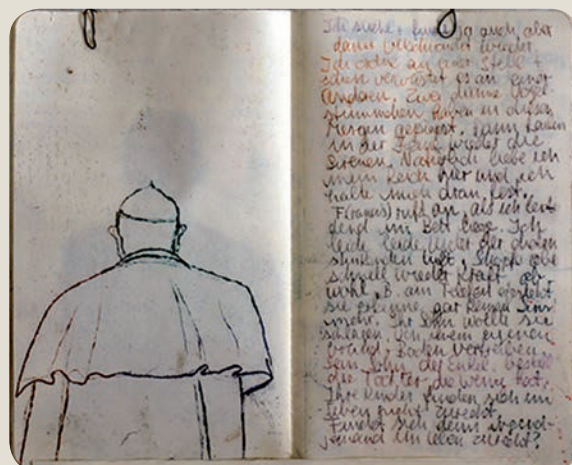 Ich suche + finde ja auch, aber
dann verschwindet wieder.
Ich ordne an einer Stelle +
schon verwüstet es an einer
anderen. Zwei dünne Vogel-
stimmchen haben an diesem
Morgen gepiepst, dann haben
in der wieder die
Sirenen. Natürlich liebe ich
mein Reich hier und ich
halte mich dran fest.
F(rancis) ruft an, als ich lei-
dend im Bett liege. Ich
leide, leide unter der
stinkenden Luft,
schnell wieder Kraft, ob-
wohl B. am Telefon
sie gar keinen Sinn
mehr. Ihr Sohn wollte sie
schlagen, von ihrem eigenen
Boden vertreiben.
Sein Sohn, der Enkel,
die Tochter, die weint
Ihre Kinder finden sich im
Leben nicht zurecht.
Findet sich denn irgend-
jemand im Leben zurecht?